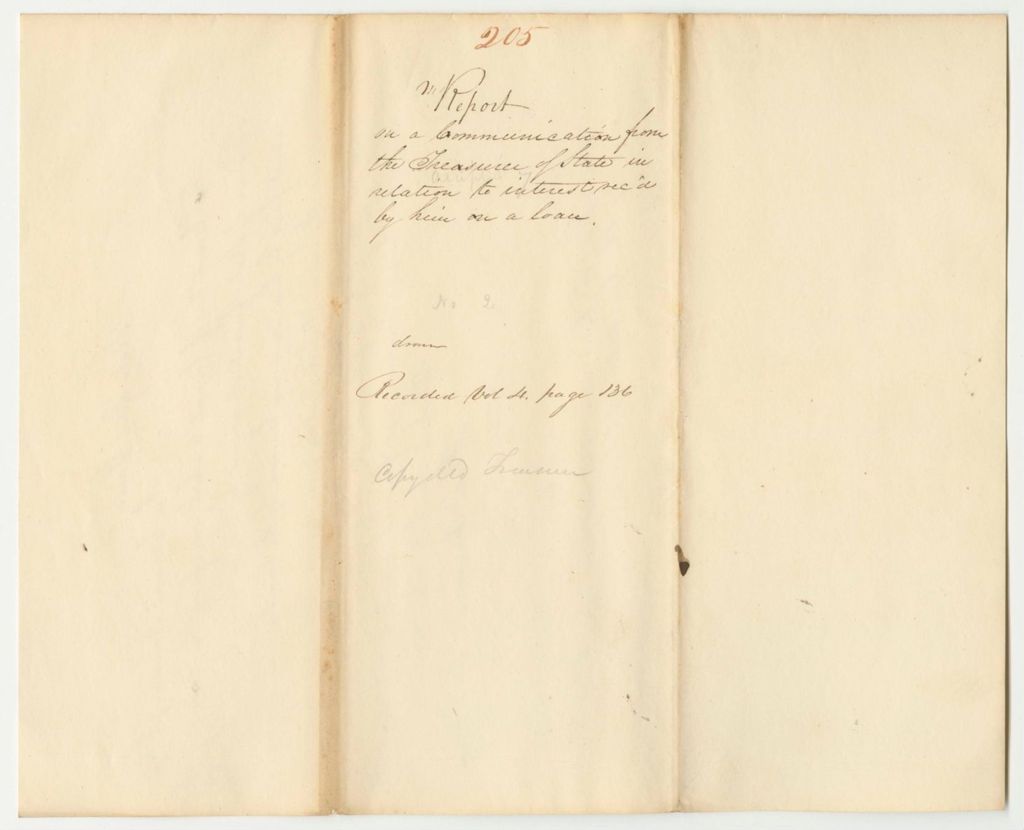 205
Report
on a Communication from
the Treasurer of State in
relation to interest rec'd
by him on a loan.
No 2
Recorded Vol 4. page 136
Copy